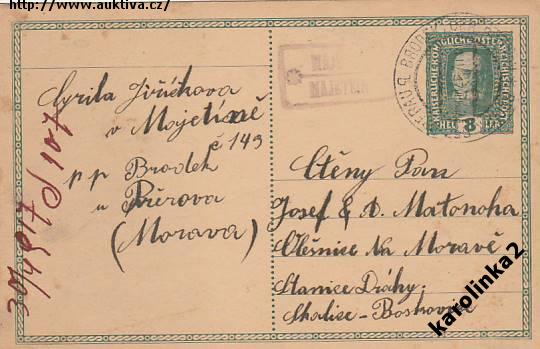 http://www.auktiva.cz/
Cyrila Jiříchova
v Majetíně
č 149
p p Brodek
u Přerova
(Morava)
30/4 917 107
MAJETEIN
BRODEK
KAISERLICHE KÖNIGLICHE ÖSTERREICHISCHE
8
HELLER
Ctěny Pan
Josef & A. Matonoha
Olešnice na Moravě
Stanice Dráhy:
Skalice-Boskovice
karolinka2